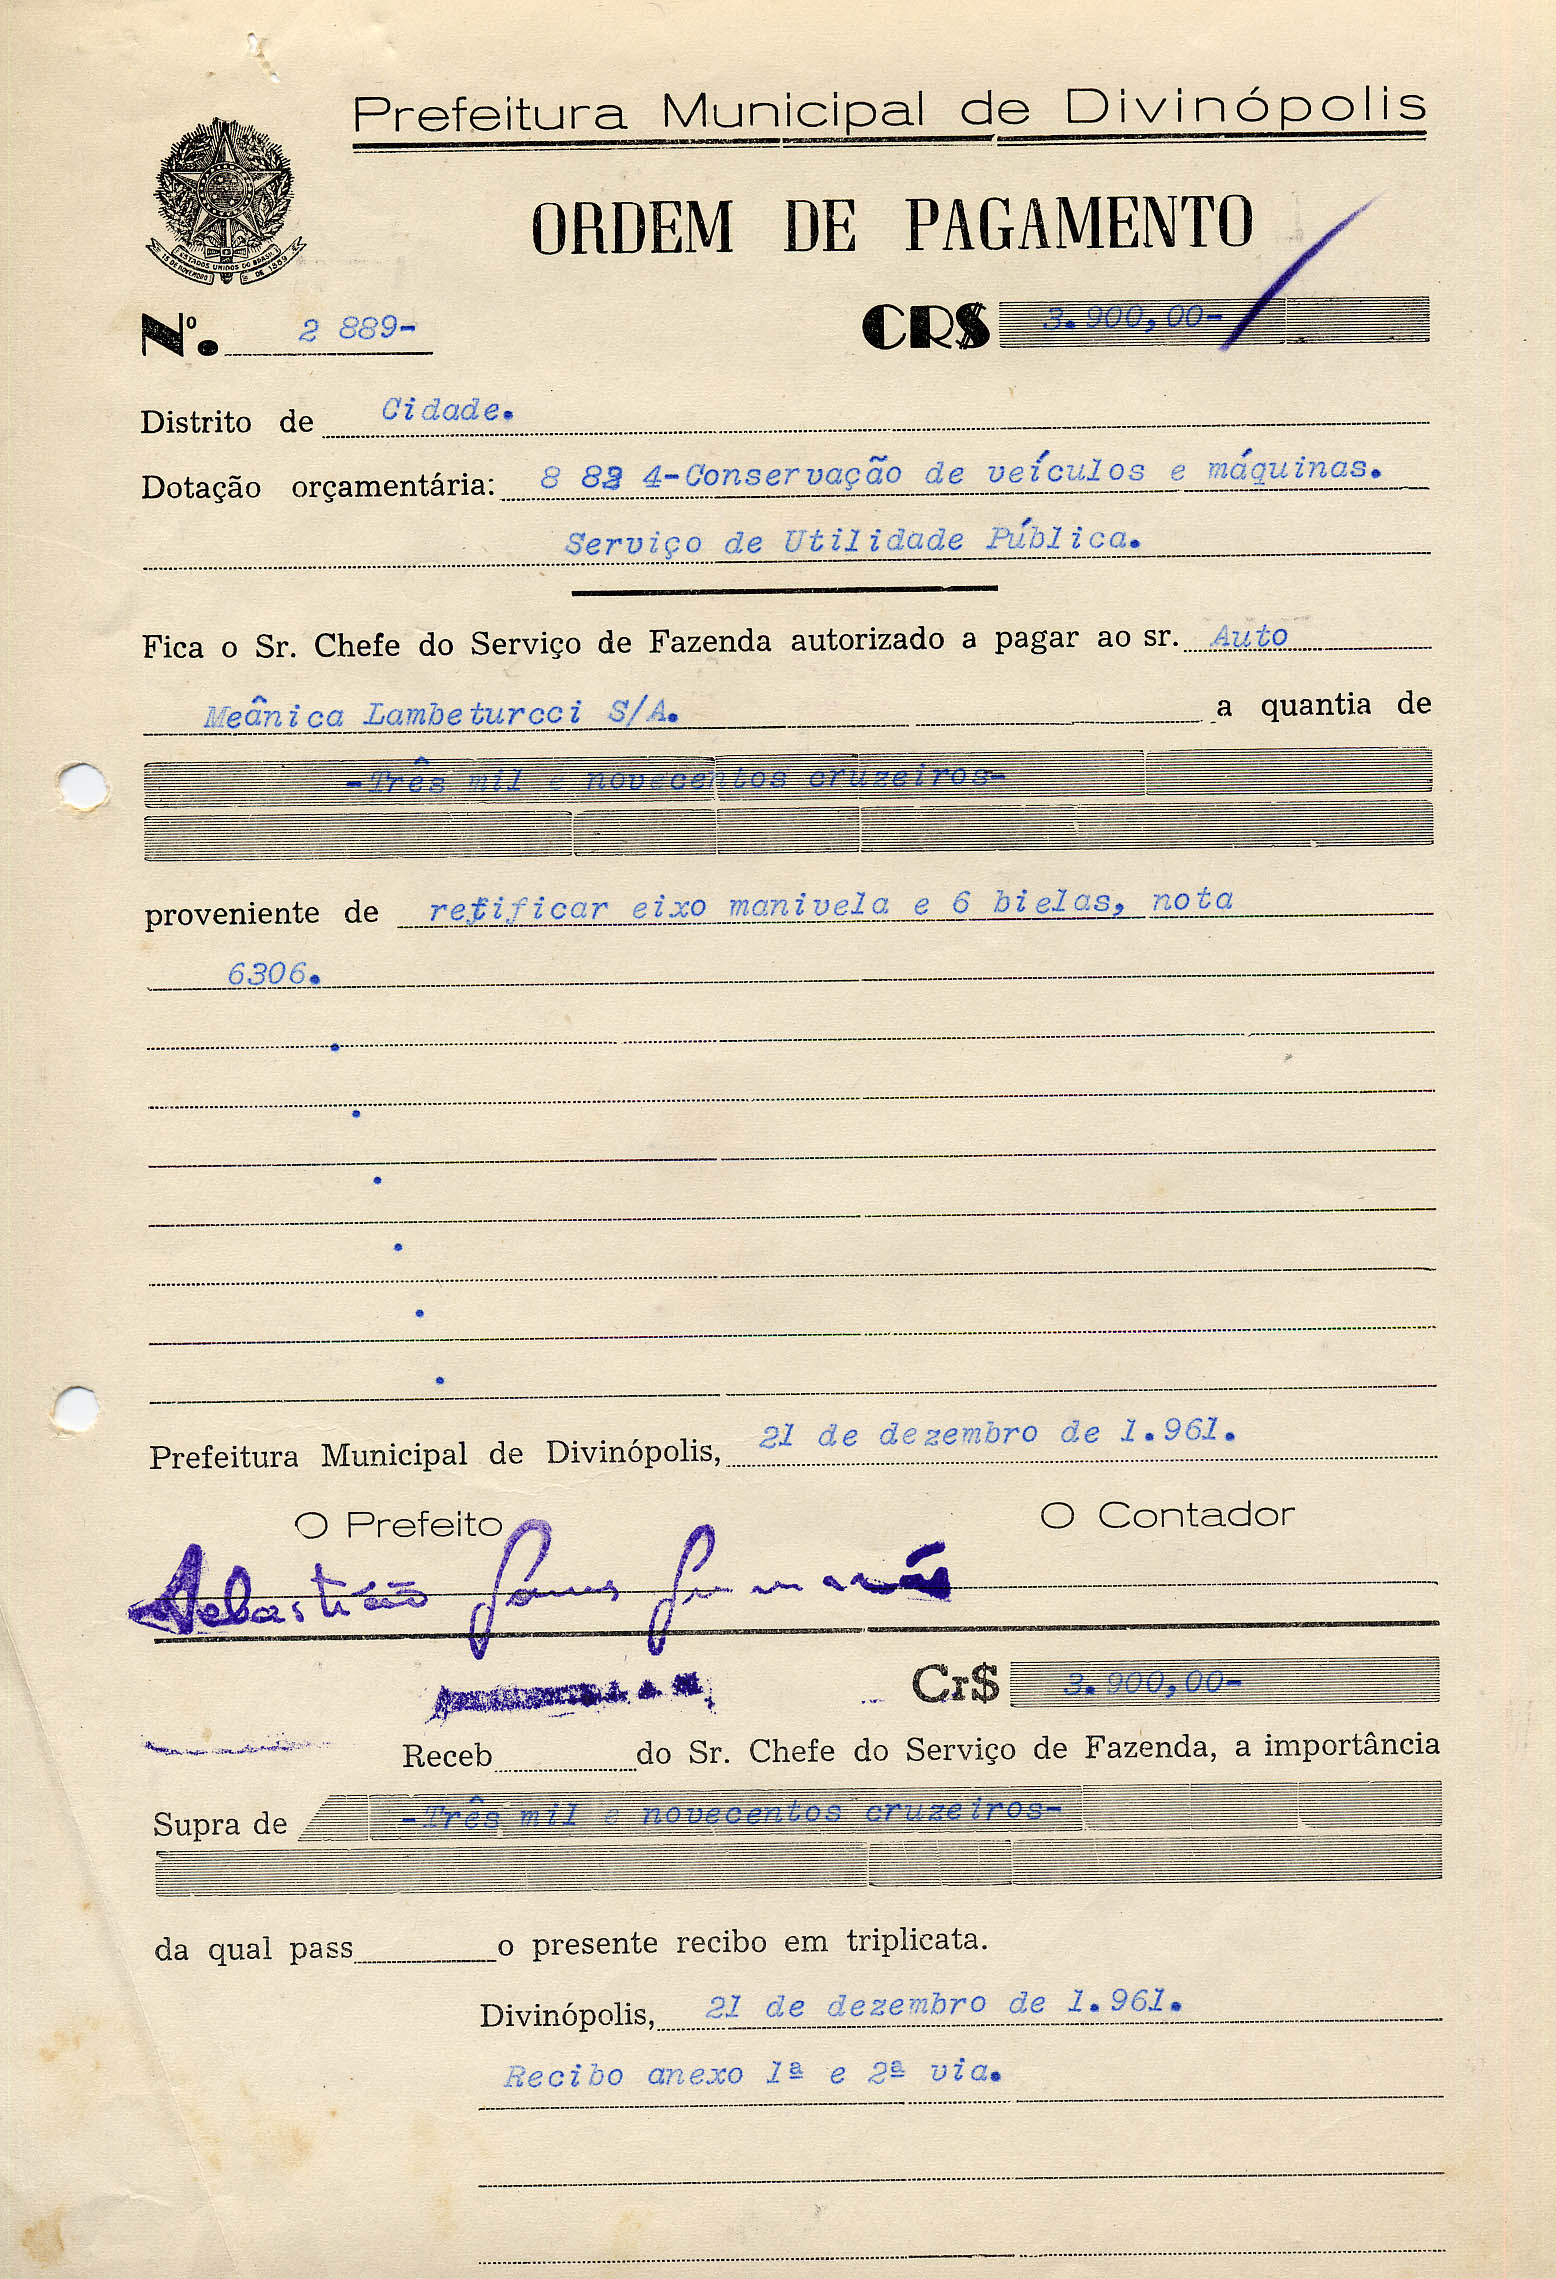 Prefeitura Municipal de Divinópolis
ORDEM DE PAGAMENTO
ESTADOS UNIDOS DO BRASIL
15 DE NOVEMBRO DE 1889
Nº. 2 889-
CR$ 3.900,00-
Distrito de Cidade.
Dotação orçamentária: 8 82 4-Conservação de veículos e máquinas.
Serviço de Utilidade Pública.
Fica o Sr. Chefe do Serviço de Fazenda autorizado a pagar ao sr. Auto
Meânica Lambeturcci S/A. a quantia de
-Três mil e novecentos cruzeiros-
proveniente de retificar eixo manivela e 6 bielas, nota
6306.
Prefeitura Municipal de Divinópolis, 21 de dezembro de 1.961.
O Prefeito O Contador
Sebastião Gomes Guimarães
Cr$ 3.900,00-
Receb do Sr. Chefe do Serviço de Fazenda, a importância
Supra de -Três mil e novecentos cruzeiros-
da qual pass o presente recibo em triplicata.
Divinópolis, 21 de dezembro de 1.961.
Recibo anexo 1ª e 2ª via.